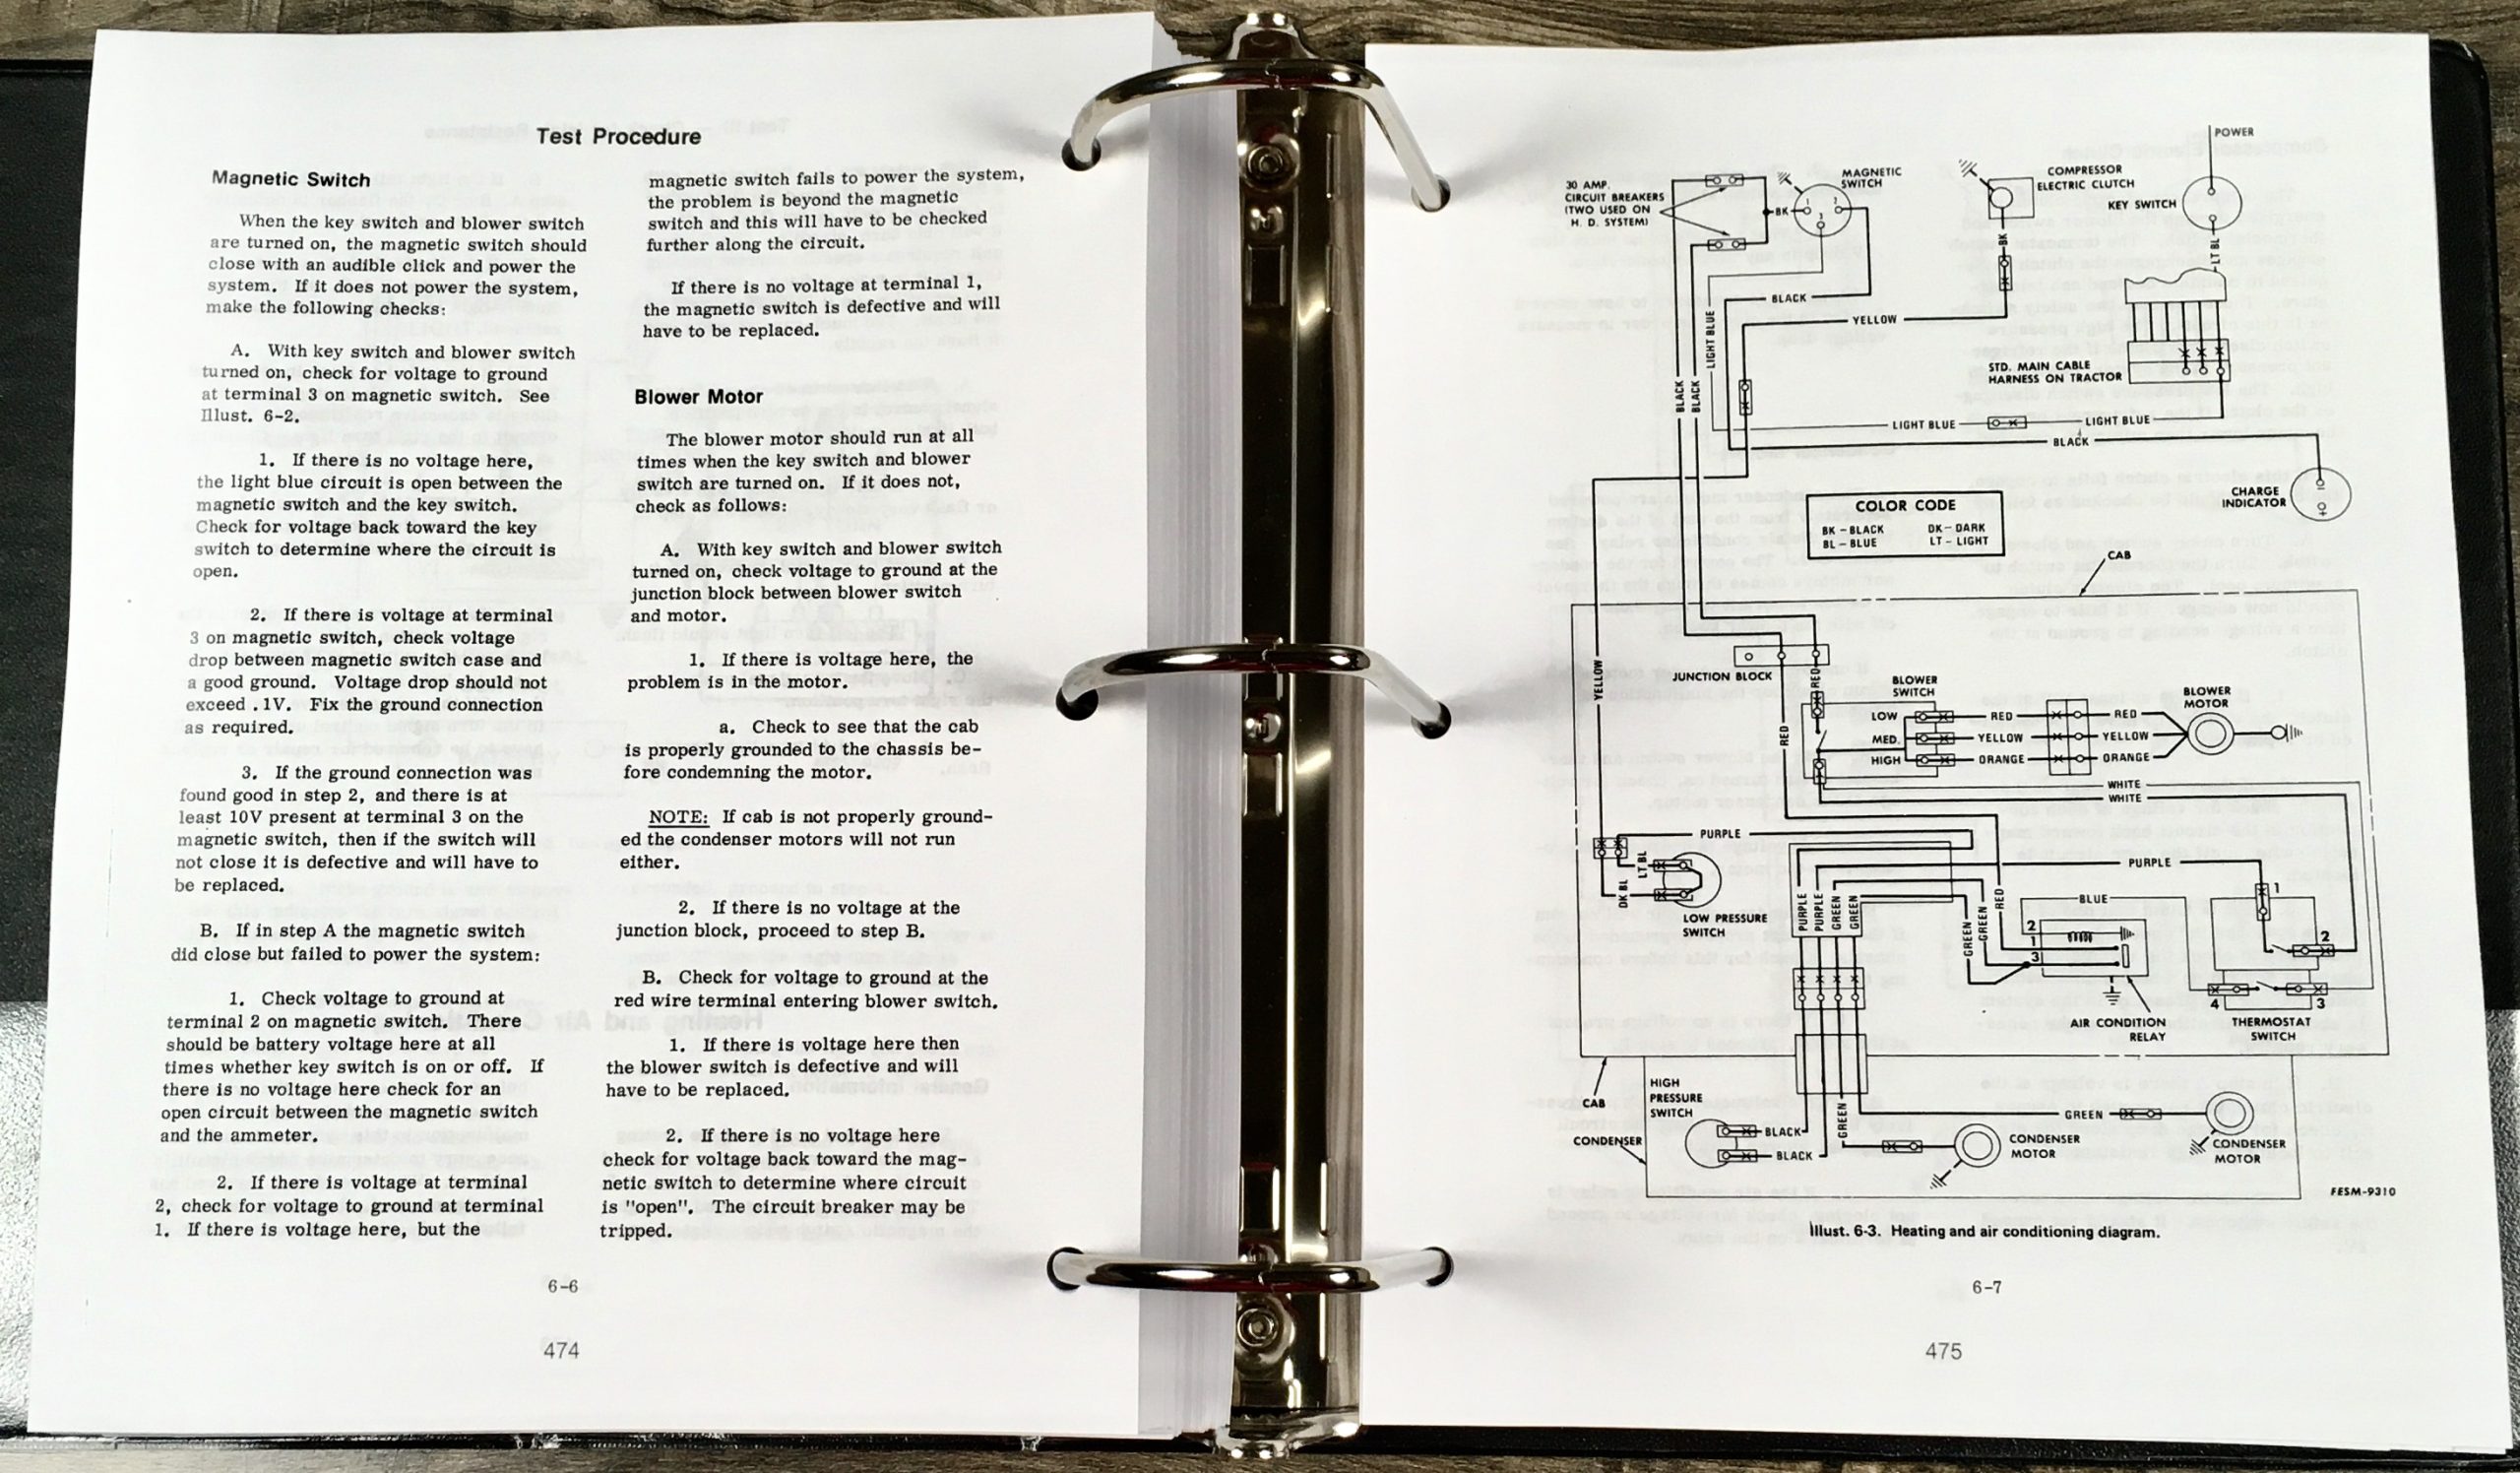 Test Procedure
Magnetic Switch
When the key switch and blower switch
are turned on, the magnetic switch should
close with an audible click and power the
system. If it does not power the system,
make the following checks:
A. With key switch and blower switch
turned on, check for voltage to ground
at terminal 3 on magnetic switch. See
Illust. 6-2.
1. If there is no voltage here,
the light blue circuit is open between the
magnetic switch and the key switch.
Check for voltage back toward the key
switch to determine where the circuit is
open.
2. If there is voltage at terminal
3 on magnetic switch, check voltage
drop between magnetic switch case and
a good ground. Voltage drop should not
exceed .1V. Fix the ground connection
as required.
3. If the ground connection was
found good in step 2, and there is at
least 10V present at terminal 3 on the
magnetic switch, then if the switch will
not close it is defective and will have to
be replaced.
B. If in step A the magnetic switch
did close but failed to power the system:
1. Check voltage to ground at
terminal 2 on magnetic switch. There
should be battery voltage here at all
times whether key switch is on or off. If
there is no voltage here check for an
open circuit between the magnetic switch
and the ammeter.
2. If there is voltage at terminal
2, check for voltage to ground at terminal
1. If there is voltage here, but the
magnetic switch fails to power the system,
the problem is beyond the magnetic
switch and this will have to be checked
further along the circuit.
If there is no voltage at terminal 1,
the magnetic switch is defective and will
have to be replaced.
Blower Motor
The blower motor should run at all
times when the key switch and blower
switch are turned on. If it does not,
check as follows:
A. With key switch and blower switch
turned on, check voltage to ground at the
junction block between blower switch
and motor.
1. If there is voltage here, the
problem is in the motor.
a. Check to see that the cab
is properly grounded to the chassis be-
fore condemning the motor.
NOTE: If cab is not properly ground-
ed the condenser motors will not run
either.
2. If there is no voltage at the
junction block, proceed to step B.
B. Check for voltage to ground at the
red wire terminal entering blower switch.
1. If there is voltage here then
the blower switch is defective and will
have to be replaced.
2. If there is no voltage here
check for voltage back toward the mag-
netic switch to determine where circuit
is "open". The circuit breaker may be
tripped.
6-6
474
POWER
30 AMP.
CIRCUIT BREAKERS
(TWO USED ON
H. D. SYSTEM)
BK
1
2
3
MAGNETIC
SWITCH
COMPRESSOR
ELECTRIC CLUTCH
KEY SWITCH
BK
LT BL
BLACK
YELLOW
LIGHT BLUE
BLACK
BLACK
STD. MAIN CABLE
HARNESS ON TRACTOR
LIGHT BLUE
LIGHT BLUE
BLACK
CHARGE
INDICATOR
COLOR CODE
BK - BLACK
DK - DARK
BL - BLUE
LT - LIGHT
CAB
YELLOW
JUNCTION BLOCK
RED
RED
BLOWER
SWITCH
LOW
MED.
HIGH
RED
YELLOW
ORANGE
RED
YELLOW
ORANGE
BLOWER
MOTOR
WHITE
WHITE
PURPLE
PURPLE
LT BL
DK BL
LOW PRESSURE
SWITCH
PURPLE
PURPLE
GREEN
GREEN
GREEN
GREEN
RED
BLUE
2
1
3
AIR CONDITION
RELAY
1
2
4
3
THERMOSTAT
SWITCH
CAB
HIGH
PRESSURE
SWITCH
CONDENSER
BLACK
BLACK
GREEN
GREEN
CONDENSER
MOTOR
CONDENSER
MOTOR
FESM-9310
Illust. 6-3. Heating and air conditioning diagram.
6-7
475